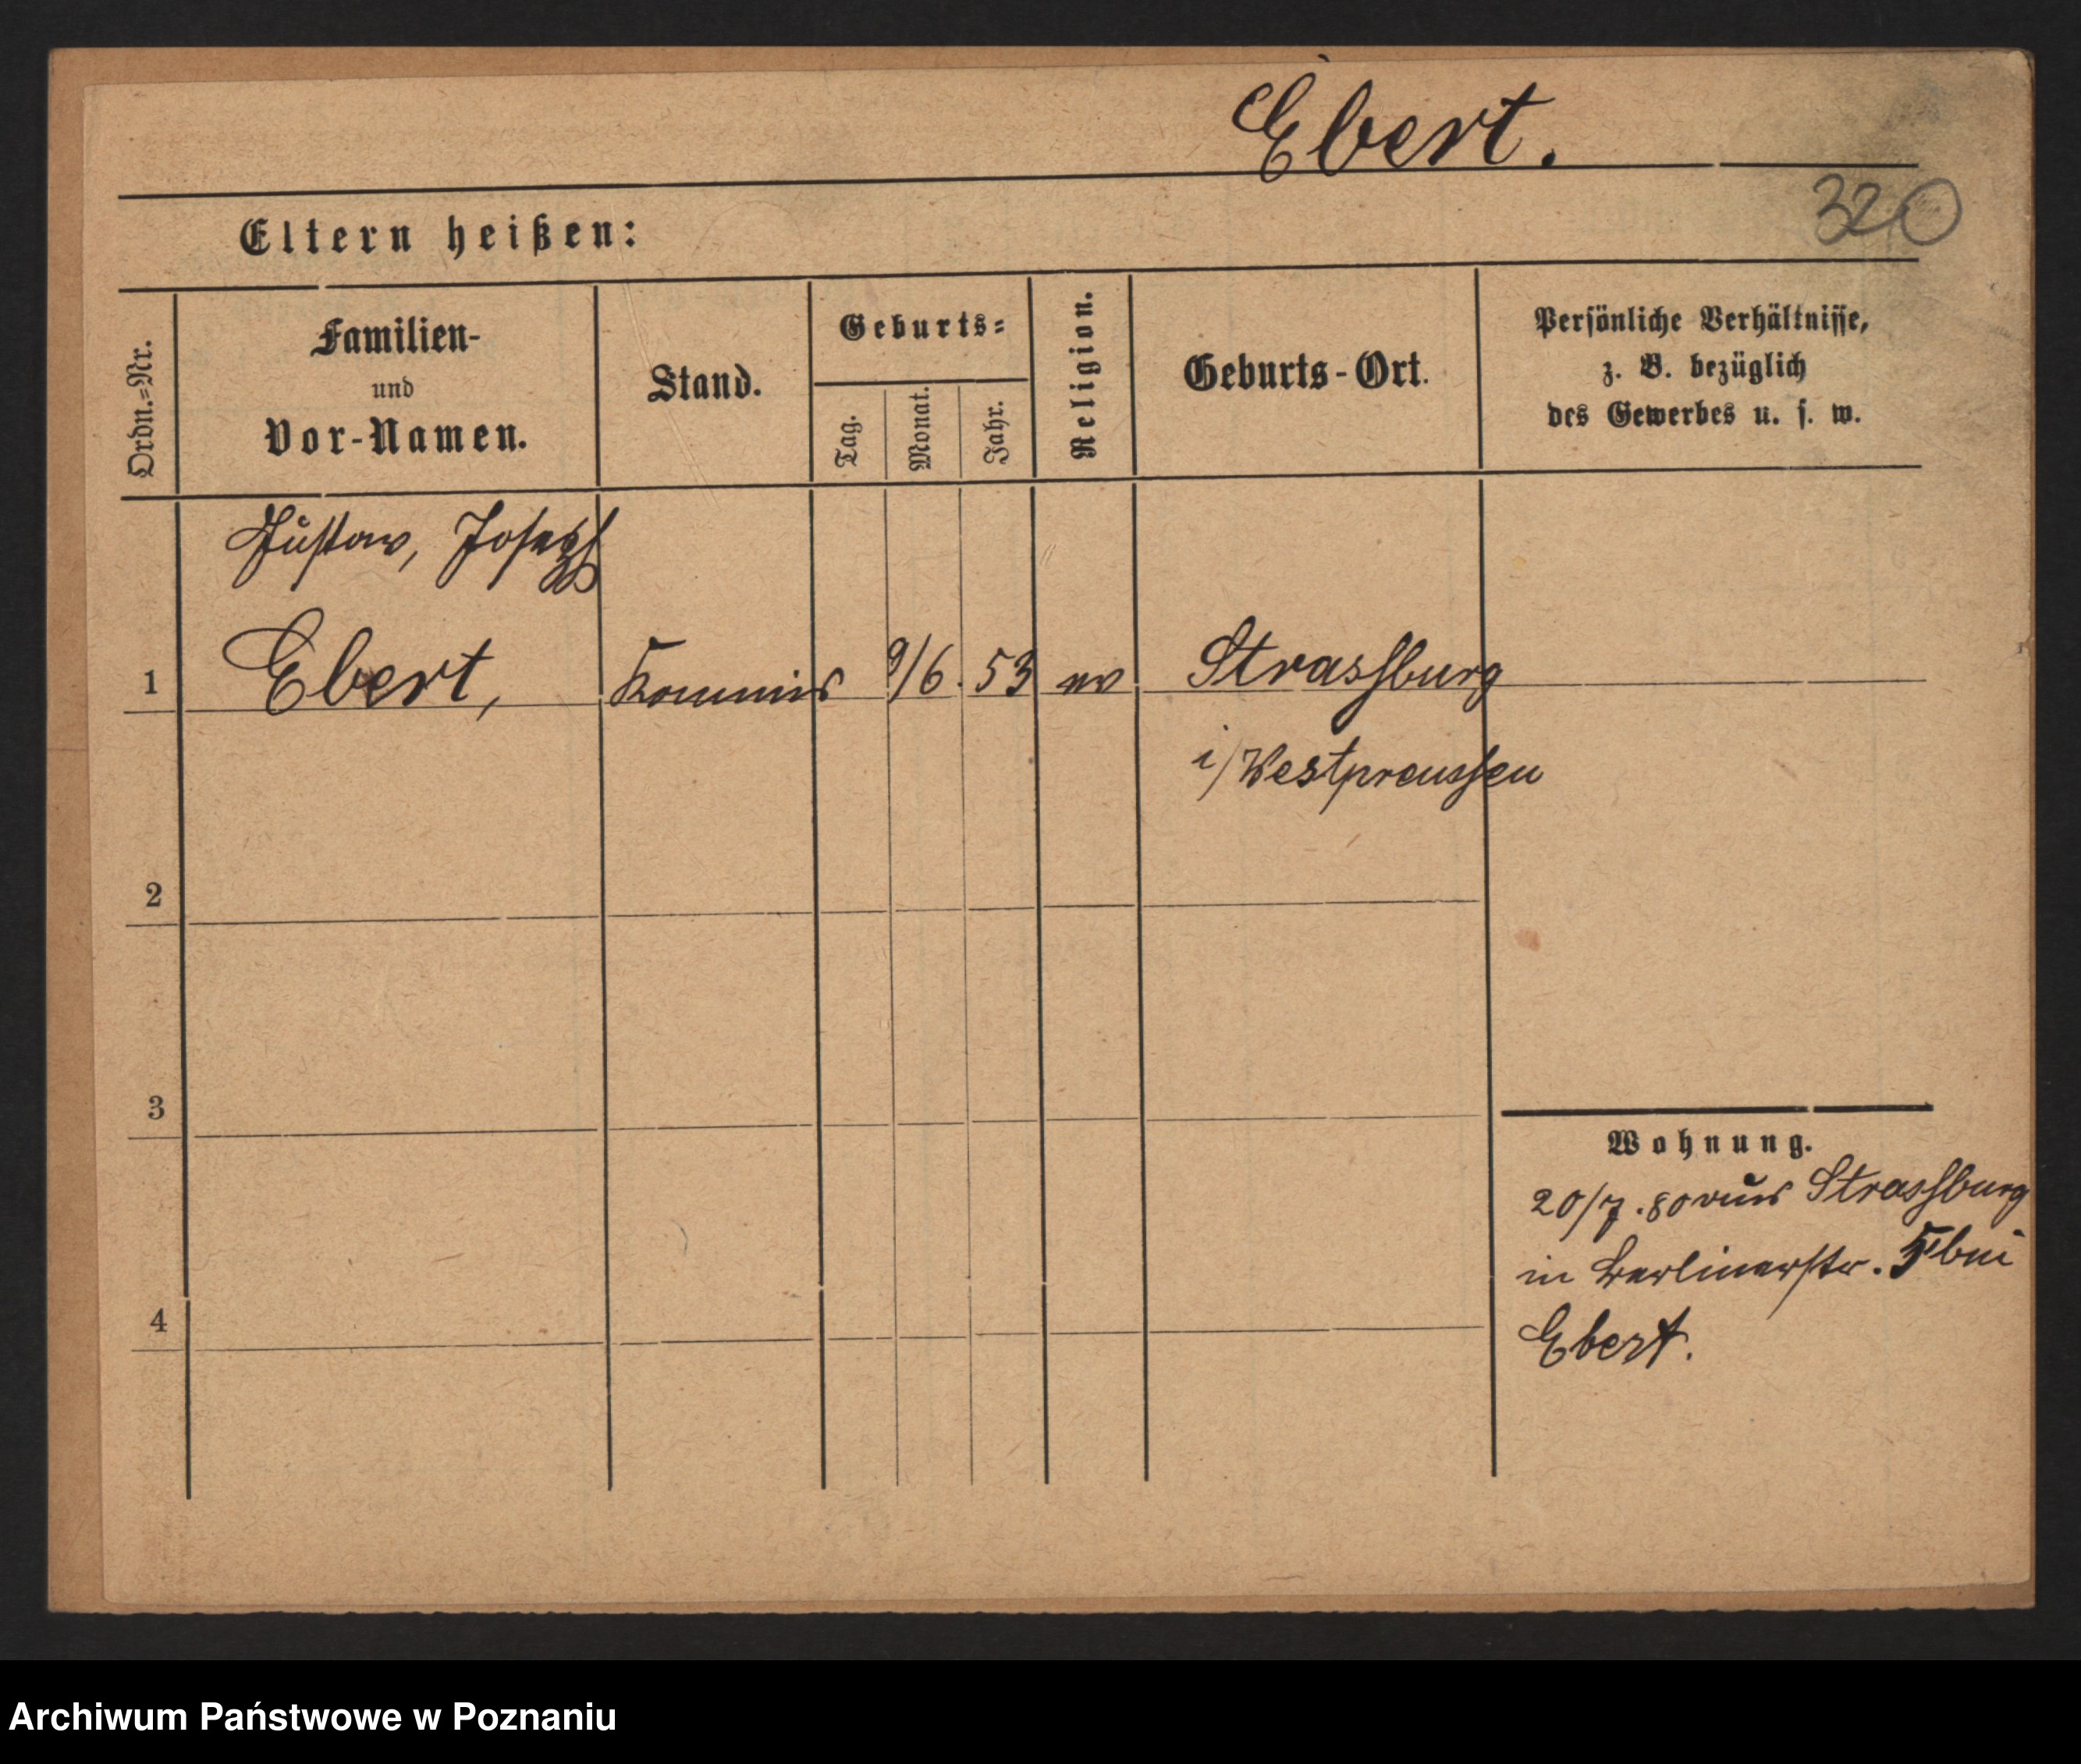 Ebert.
320
Eltern heißen:
Ordn.=Nr.
Familien-
und
Vor-Namen.
Stand.
Geburts=
Tag.
Monat.
Jahr.
Religion.
Geburts-Ort.
Persönliche Verhältnisse,
z. B. bezüglich
des Gewerbes u. s. w.
Gustav, Joseph
1 Ebert, Kommis 9/6. 53 ev Strassburg
i/Westpreussen
2
3
Wohnung.
20/7.80 aus Strassburg
in Berlinerstr. 5 bei
4
Ebert.
Archiwum Państwowe w Poznaniu